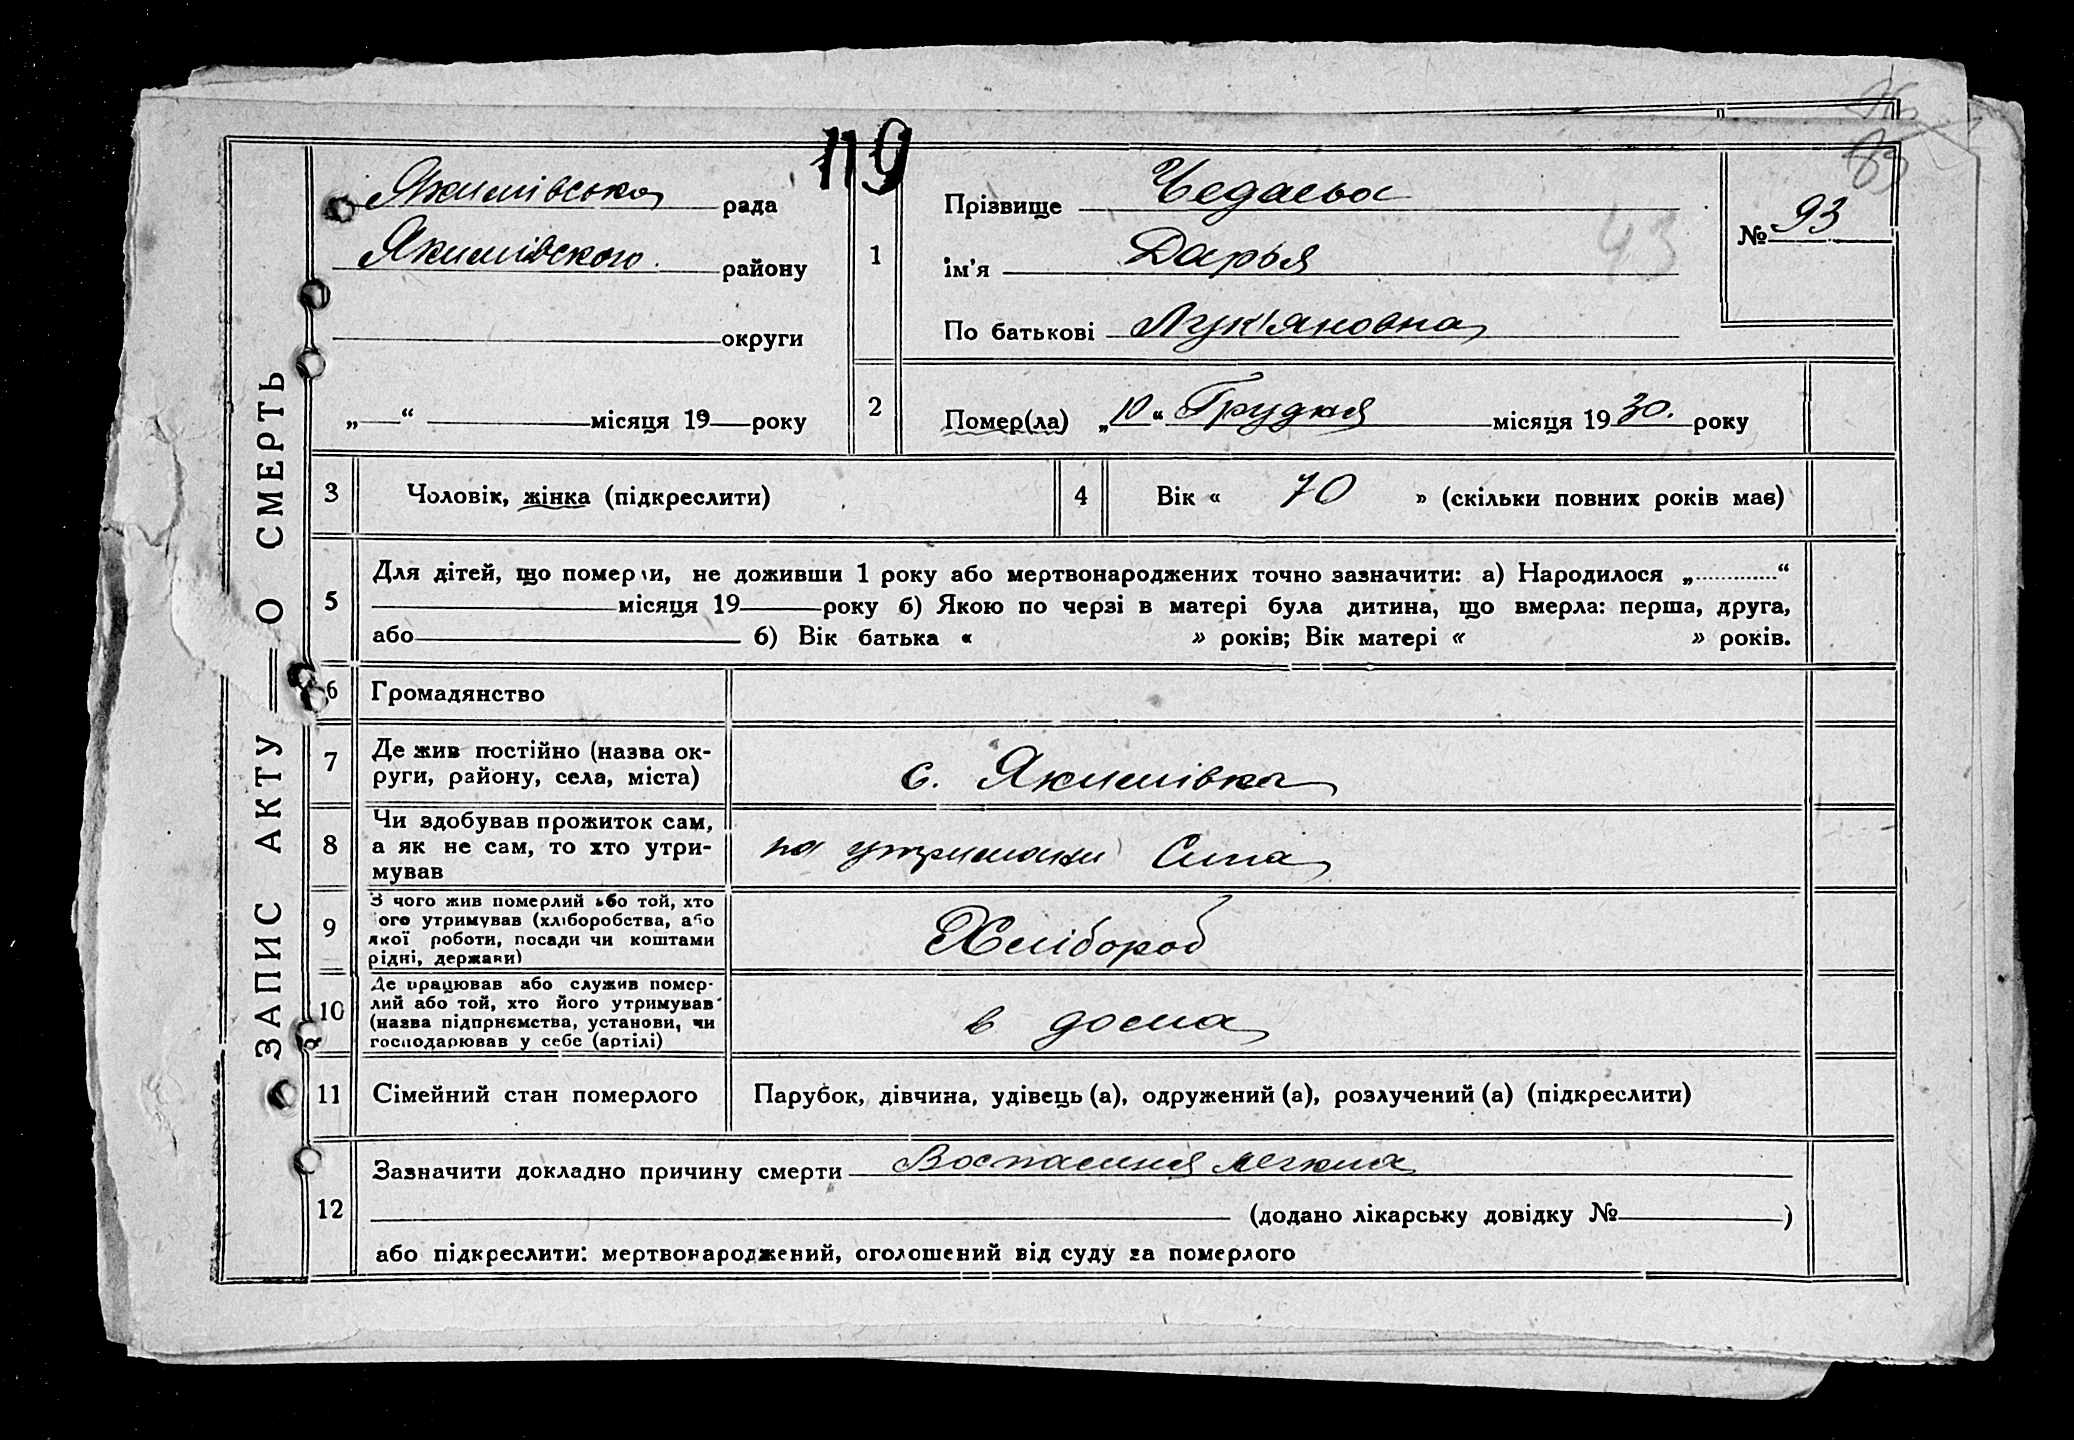 96
83
119
ЗАПИС АКТУ — О СМЕРТЬ
Якимівська рада
Якимівського району
округи
„ “ місяця 19 року
1
Прізвище Чедаева
ім’я Дарья
По батькові Лук'яновна
43
№ 93
2
Помер(ла) „10“ Грудня місяця 1930. року
3
Чоловік, жінка (підкреслити)
4
Вік « 70 » (скільки повних років має)
5
Для дітей, що померли, не доживши 1 року або мертвонароджених точно зазначити: а) Народилося „ “
місяця 19 року б) Якою по черзі в матері була дитина, що вмерла: перша, друга,
або б) Вік батька « » років; Вік матері « » років.
6
Громадянство
7
Де жив постійно (назва ок-
руги, району, села, міста)
с. Якимівка
8
Чи здобував прожиток сам,
а як не сам, то хто утри-
мував
на утримани Сина
9
З чого жив померлий або той, хто
ого утримував (хліборобства, або
якої роботи, посади чи коштами
рідні, держави)
Хлібороб
10
Де працював або служив помер-
лий або той, хто його утримував
(назва підприємства, установи, чи
господарював у себе (артілі)
в дома
11
Сімейний стан померлого
Парубок, дівчина, удівець (а), одружений (а), розлучений (а) (підкреслити)
12
Зазначити докладно причину смерти Воспаления легких
(додано лікарську довідку № )
або підкреслити: мертвонароджений, оголошений від суду за померлого